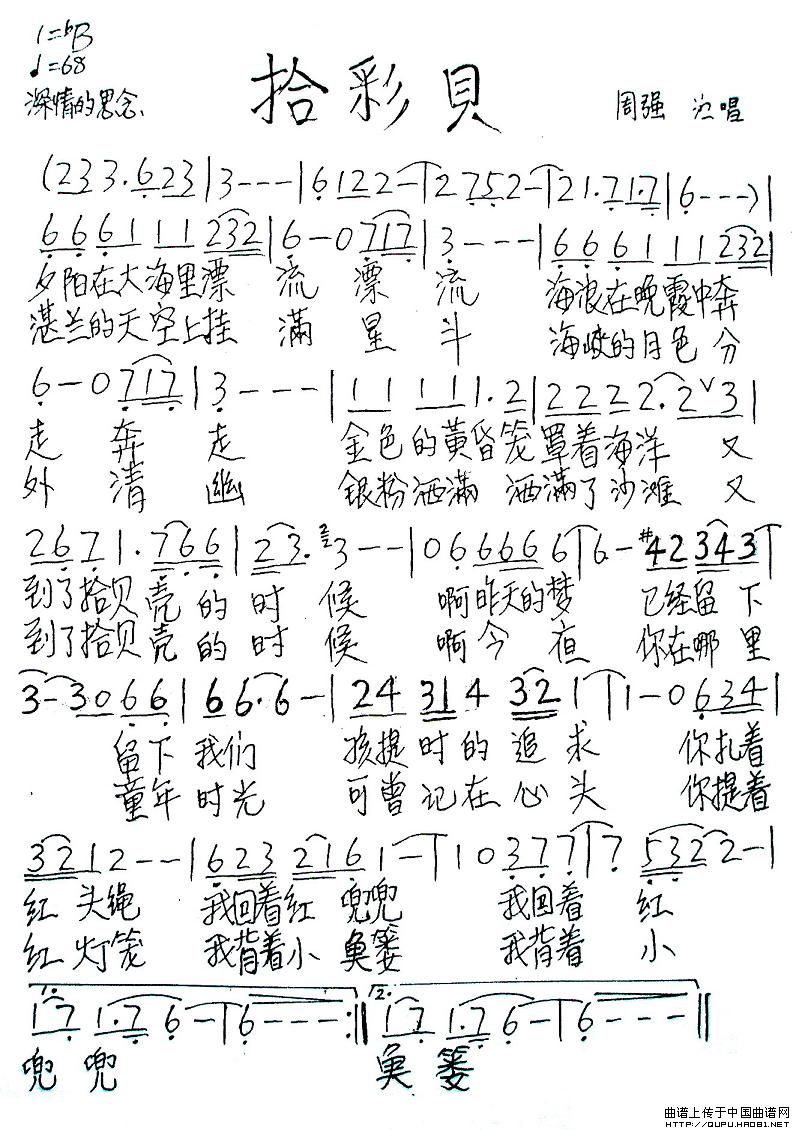 1=♭B
♩=68
深情的思念、
拾彩貝
周强 演唱
(233.623|3---|6122-|2752-|21.71.7|6---)|
666111232|6-0717|3---|666111232|
夕阳在大海里漂 流 漂 流 海浪在晚霞中奔
湛兰的天空上挂 满 星 斗 海峡的月色分
6-0717|3---|111111.2|2222.2∨3|
走 奔 走 金色的黄昏笼罩着海洋 又
外 清 幽 银粉洒满 洒满了沙滩 又
2671.766|23.3--|066666|6-#42343|
到了拾贝壳的时候 啊昨天的梦 已经留下
到了拾贝壳的时候 啊今夜 你在哪里
3-3066|666.6-|24314321|1-0634|
留下我们 孩提时的追求 你扎着
童年时光 可曾记在心头 你提着
3212--|6232161-|10377|75322-|
红头绳 我回着红兜兜 我回着 红
红灯笼 我背着小鱼篓 我背着 小
1. 2.
171.76-|6---:‖171.76-|6---‖
兜兜 鱼篓
曲谱上传于中国曲谱网
HTTP://QUPU.HAO81.NET